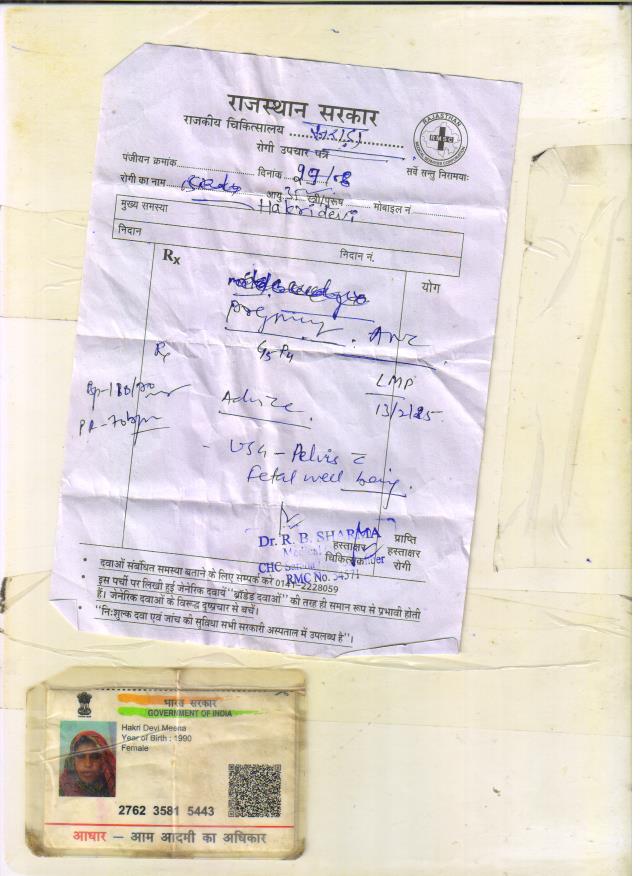 राजस्थान सरकार
राजकीय चिकित्सालय
रोगी उपचार पत्र
RAJASTHAN
RMSC
MEDICAL SERVICES CORPORATION
पंजीयन क्रमांक
दिनांक 29/08
सर्वे सन्तु निरामयाः
रोगी का नाम
आयु स्त्री/पुरूष
मोबाइल नं
मुख्य समस्या Hakridevi
निदान
निदान नं.
Rx
योग
Pregnancy ANC
Rx G5P4
LMP
BP-110/70
Advice
13/2/25
PR-70bpm
USG - Pelvis c
Fetal well being.
Dr. R. B. SHARMA
प्राप्ति
Medical हस्ताक्षर हस्ताक्षर
CHC चिकित्सक रोगी
RMC No.
• दवाओं संबंधित समस्या बताने के लिए सम्पर्क करें 0141-2228059
• इस पर्ची पर लिखी हुई जेनेरिक दवायें "ब्रांडेड दवाओं" की तरह ही समान रूप से प्रभावी होती
हैं। जेनेरिक दवाओं के विरूद्ध दुष्प्रचार से बचें।
• "निःशुल्क दवा एवं जांच की सुविधा सभी सरकारी अस्पताल में उपलब्ध है"।
भारत सरकार
GOVERNMENT OF INDIA
Hakri Devi Meena
Year of Birth : 1990
Female
2762 3581 5443
आधार – आम आदमी का अधिकार